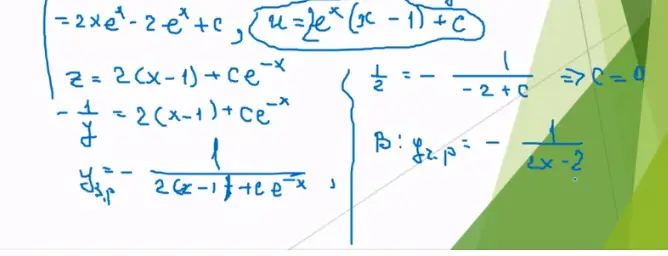 = 2xeˣ - 2eˣ + c, u = 2eˣ(x - 1) + c
z = 2(x-1) + ce⁻ˣ
- 1/y = 2(x-1) + ce⁻ˣ
y₃.ₚ = - 1/(2(x-1)+ce⁻ˣ),
1/2 = - 1/(-2+c) => c = 0
B: y₂.ₚ = - 1/(2x-2)